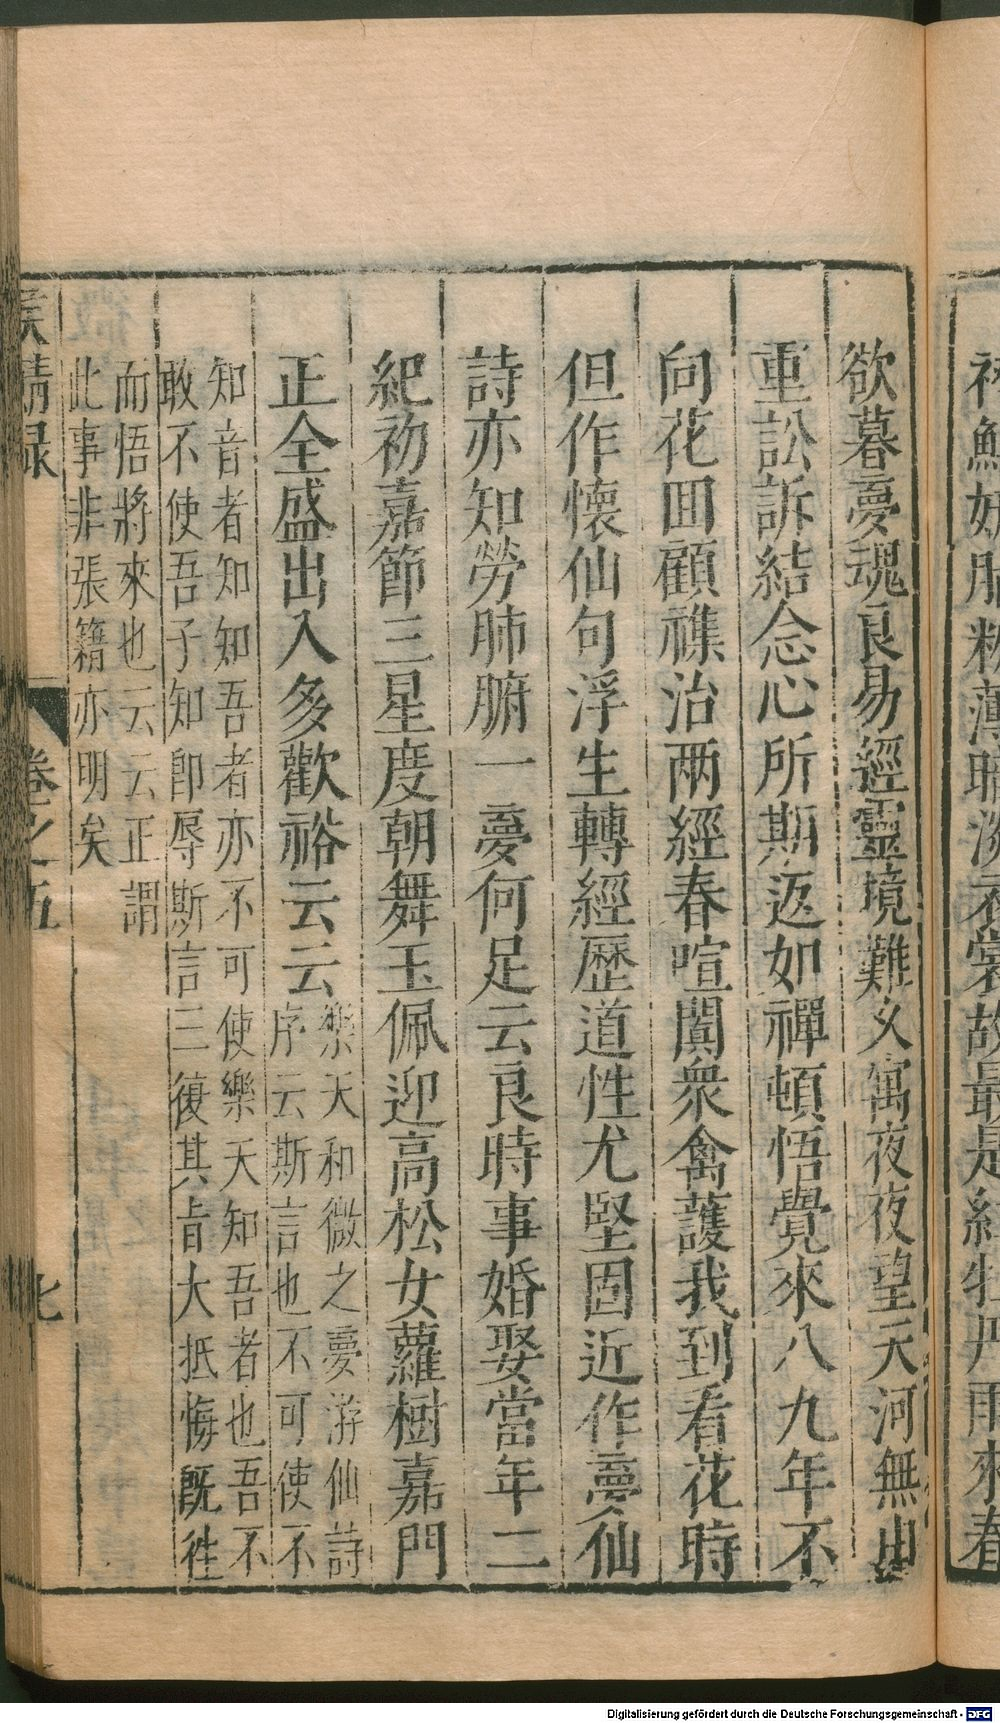 鮮妍脂粉薄暗淡衣裳故最是紅牡丹雨來春
欲暮夢魂良易經靈境難夊寓夜夜望天河無由
重訟訴結念心所期返如禪頓悟覺來八九年不
向花囬顧襍治两經春喧闐衆禽護我到看花時
但作懷仙句浮生轉經歴道性尤堅固近作夢仙
詩亦知勞肺腑一夢何足云良時事婚娶當年二
紀初嘉節三星度朝舞玉佩迎高松女蘿樹嘉門
正全盛出入多歡裕云云
樂天和微之夢游仙詩
序云斯言也不可使不
知音者知知吾者亦不可使樂天知吾者也吾不
敢不使吾子知卽辱斯言三復其旨大抵悔旣徃
而悟將來也云云正謂
此事非張籍亦明矣
侯鯖録 卷之五 七
Digitalisierung gefördert durch die Deutsche Forschungsgemeinschaft - DFG